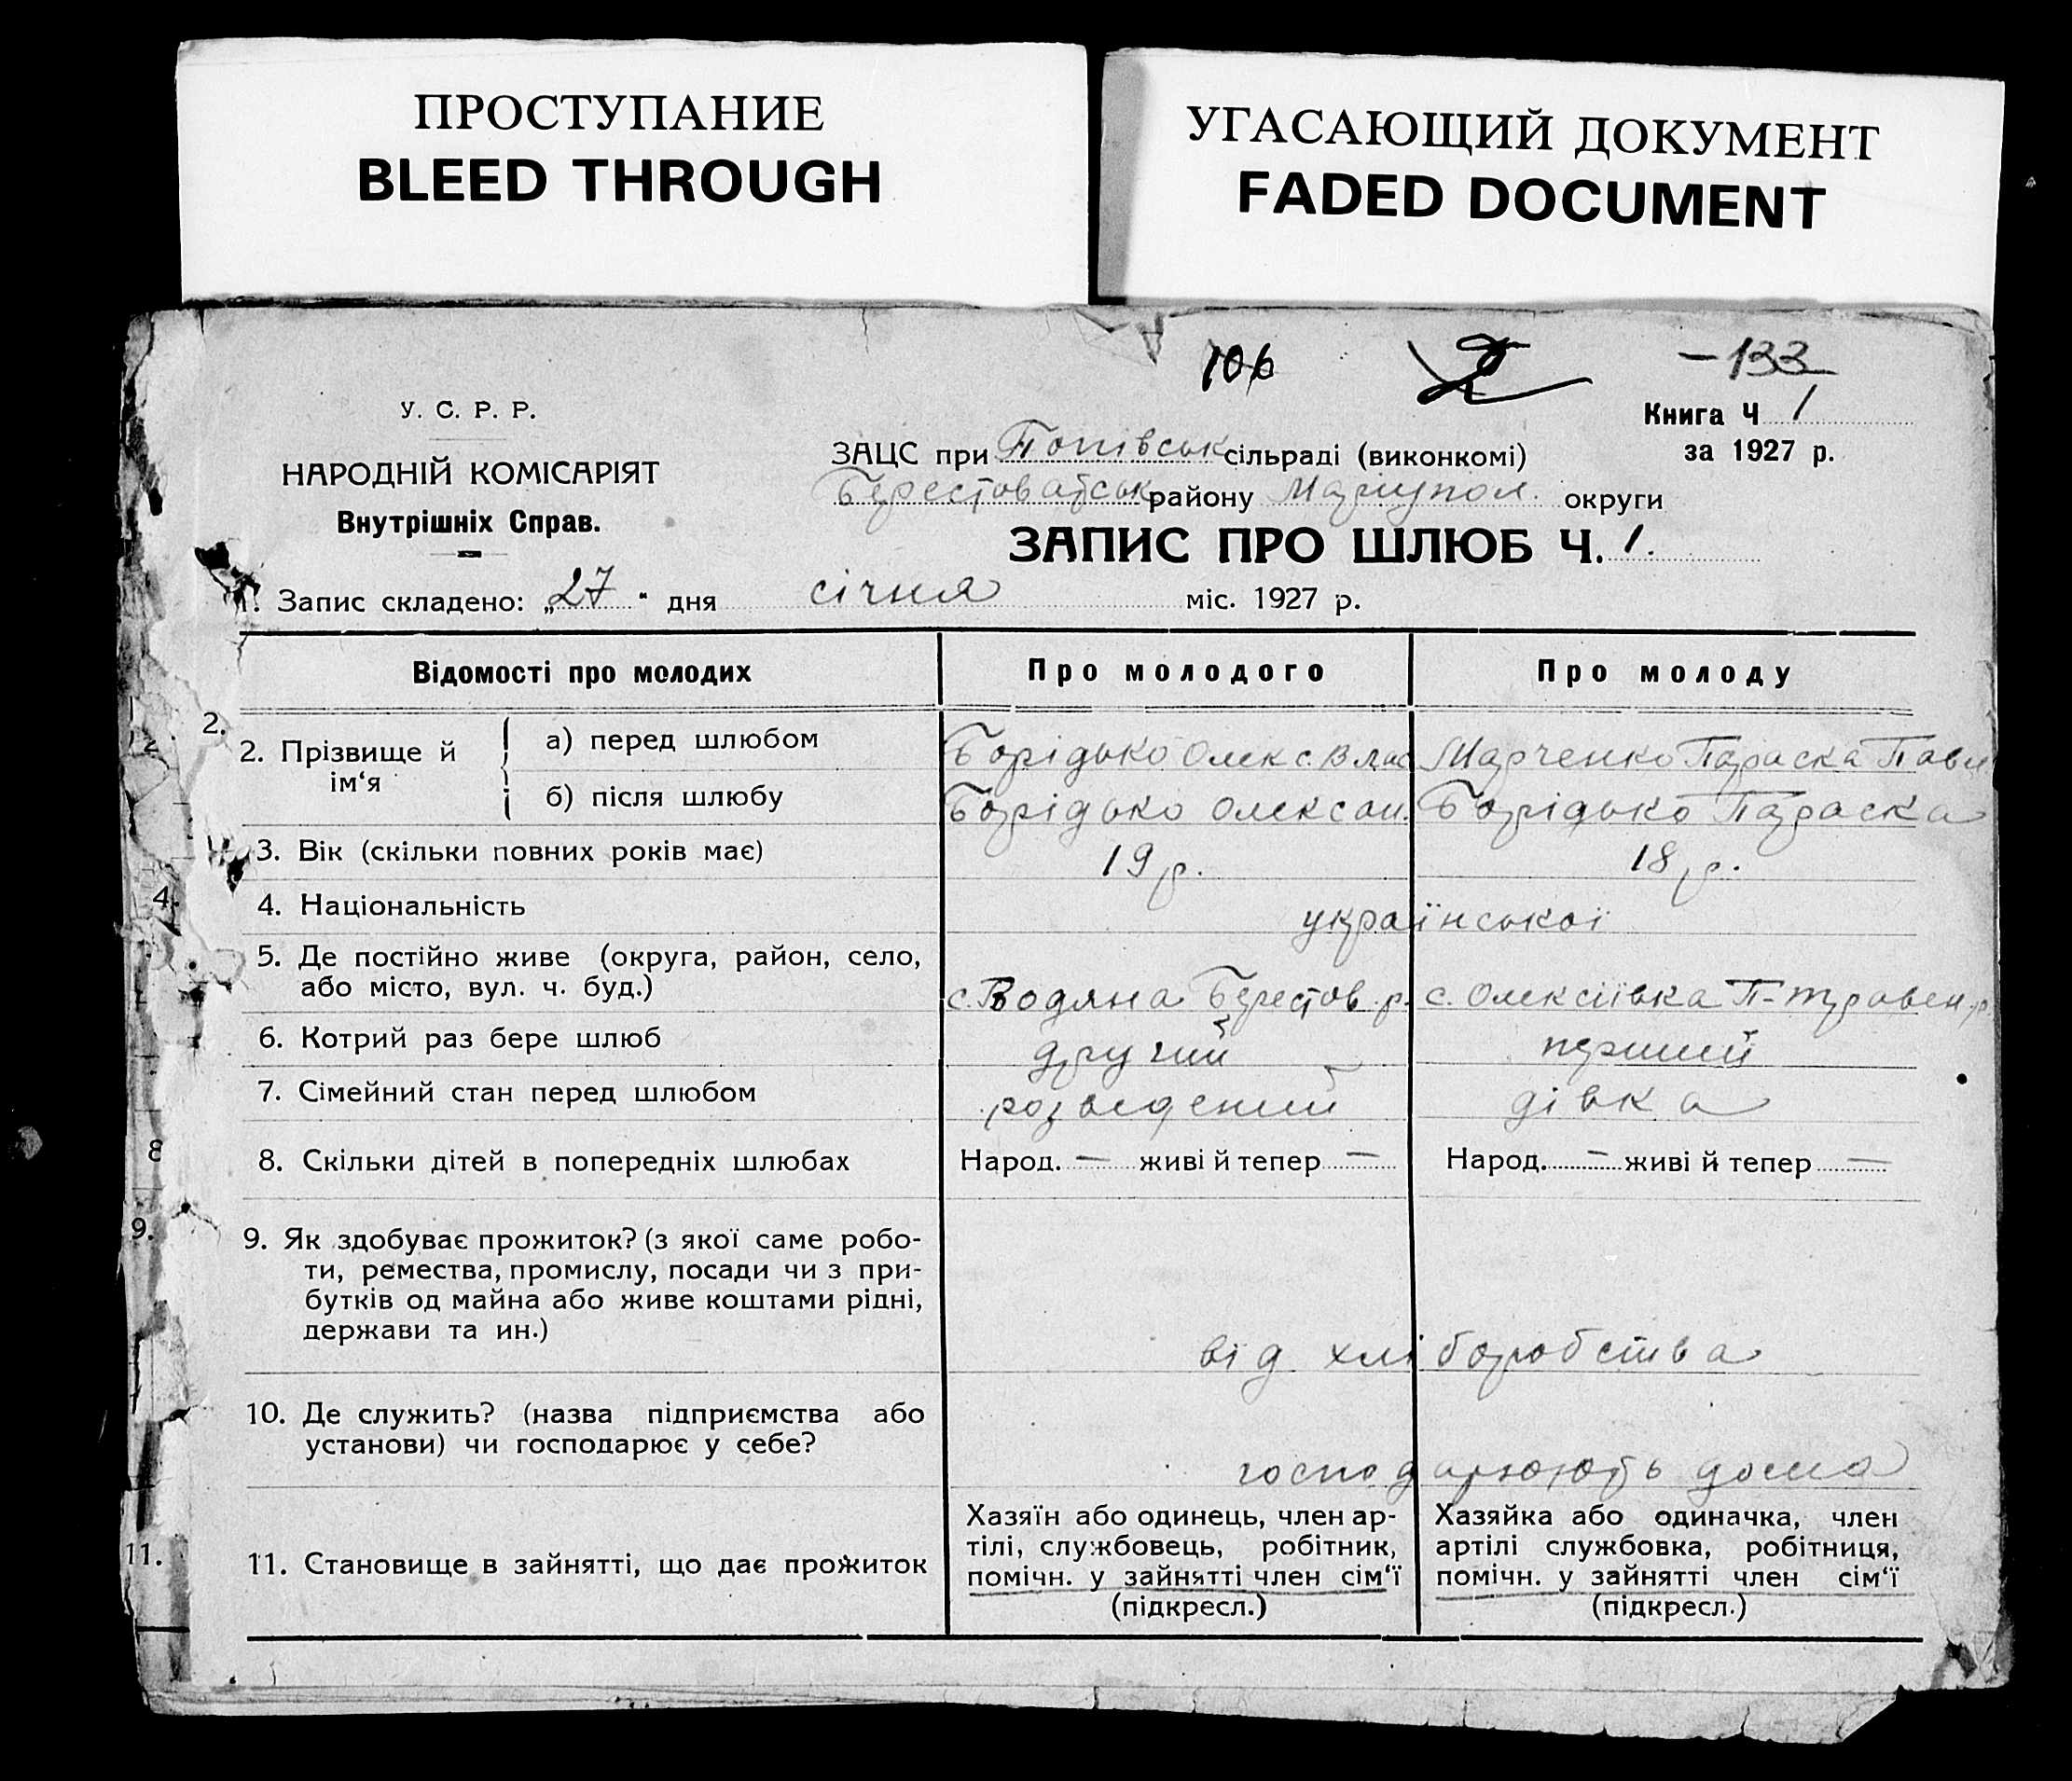 ПРОСТУПАНИЕ
BLEED THROUGH
УГАСАЮЩИЙ ДОКУМЕНТ
FADED DOCUMENT
106
-133
У. С. Р. Р.
НАРОДНІЙ КОМІСАРІЯТ
Внутрішніх Справ.
Книга Ч 1
за 1927 р.
ЗАЦС при Попівськ сільраді (виконкомі)
Берестоватськ району Маріупол. округи
ЗАПИС ПРО ШЛЮБ Ч. 1.
1. Запис складено: „27“ дня січня міс. 1927 р.
Відомості про молодих Про молодого Про молоду
2.
2. Прізвище й ім‘я
а) перед шлюбом Борідько Олекс. Влас Марченко Параска Павл
б) після шлюбу Борідько Олексан. Борідько Параска
3. Вік (скільки повних років має) 19 р. 18 р.
4.
4. Національність української
5. Де постійно живе (округа, район, село,
або місто, вул. ч. буд.) с. Водяна Берестов. р. с. Олексіївка П-травен. р
6. Котрий раз бере шлюб другий перший
7. Сімейний стан перед шлюбом розведений дівка
8
8. Скільки дітей в попередніх шлюбах Народ. — живі й тепер — Народ. — живі й тепер —
9.
9. Як здобуває прожиток? (з якої саме робо-
ти, ремества, промислу, посади чи з при-
бутків од майна або живе коштами рідні,
держави та ин.) від хліборобства
10. Де служить? (назва підприємства або
установи) чи господарює у себе? господарюють дома
11.
11. Становище в зайнятті, що дає прожиток
Хазяїн або одинець, член ар-
тілі, службовець, робітник,
помічн. у зайнятті член сім‘ї
(підкресл.)
Хазяйка або одиначка, член
артілі службовка, робітниця,
помічн. у зайнятті член сім‘ї
(підкресл.)